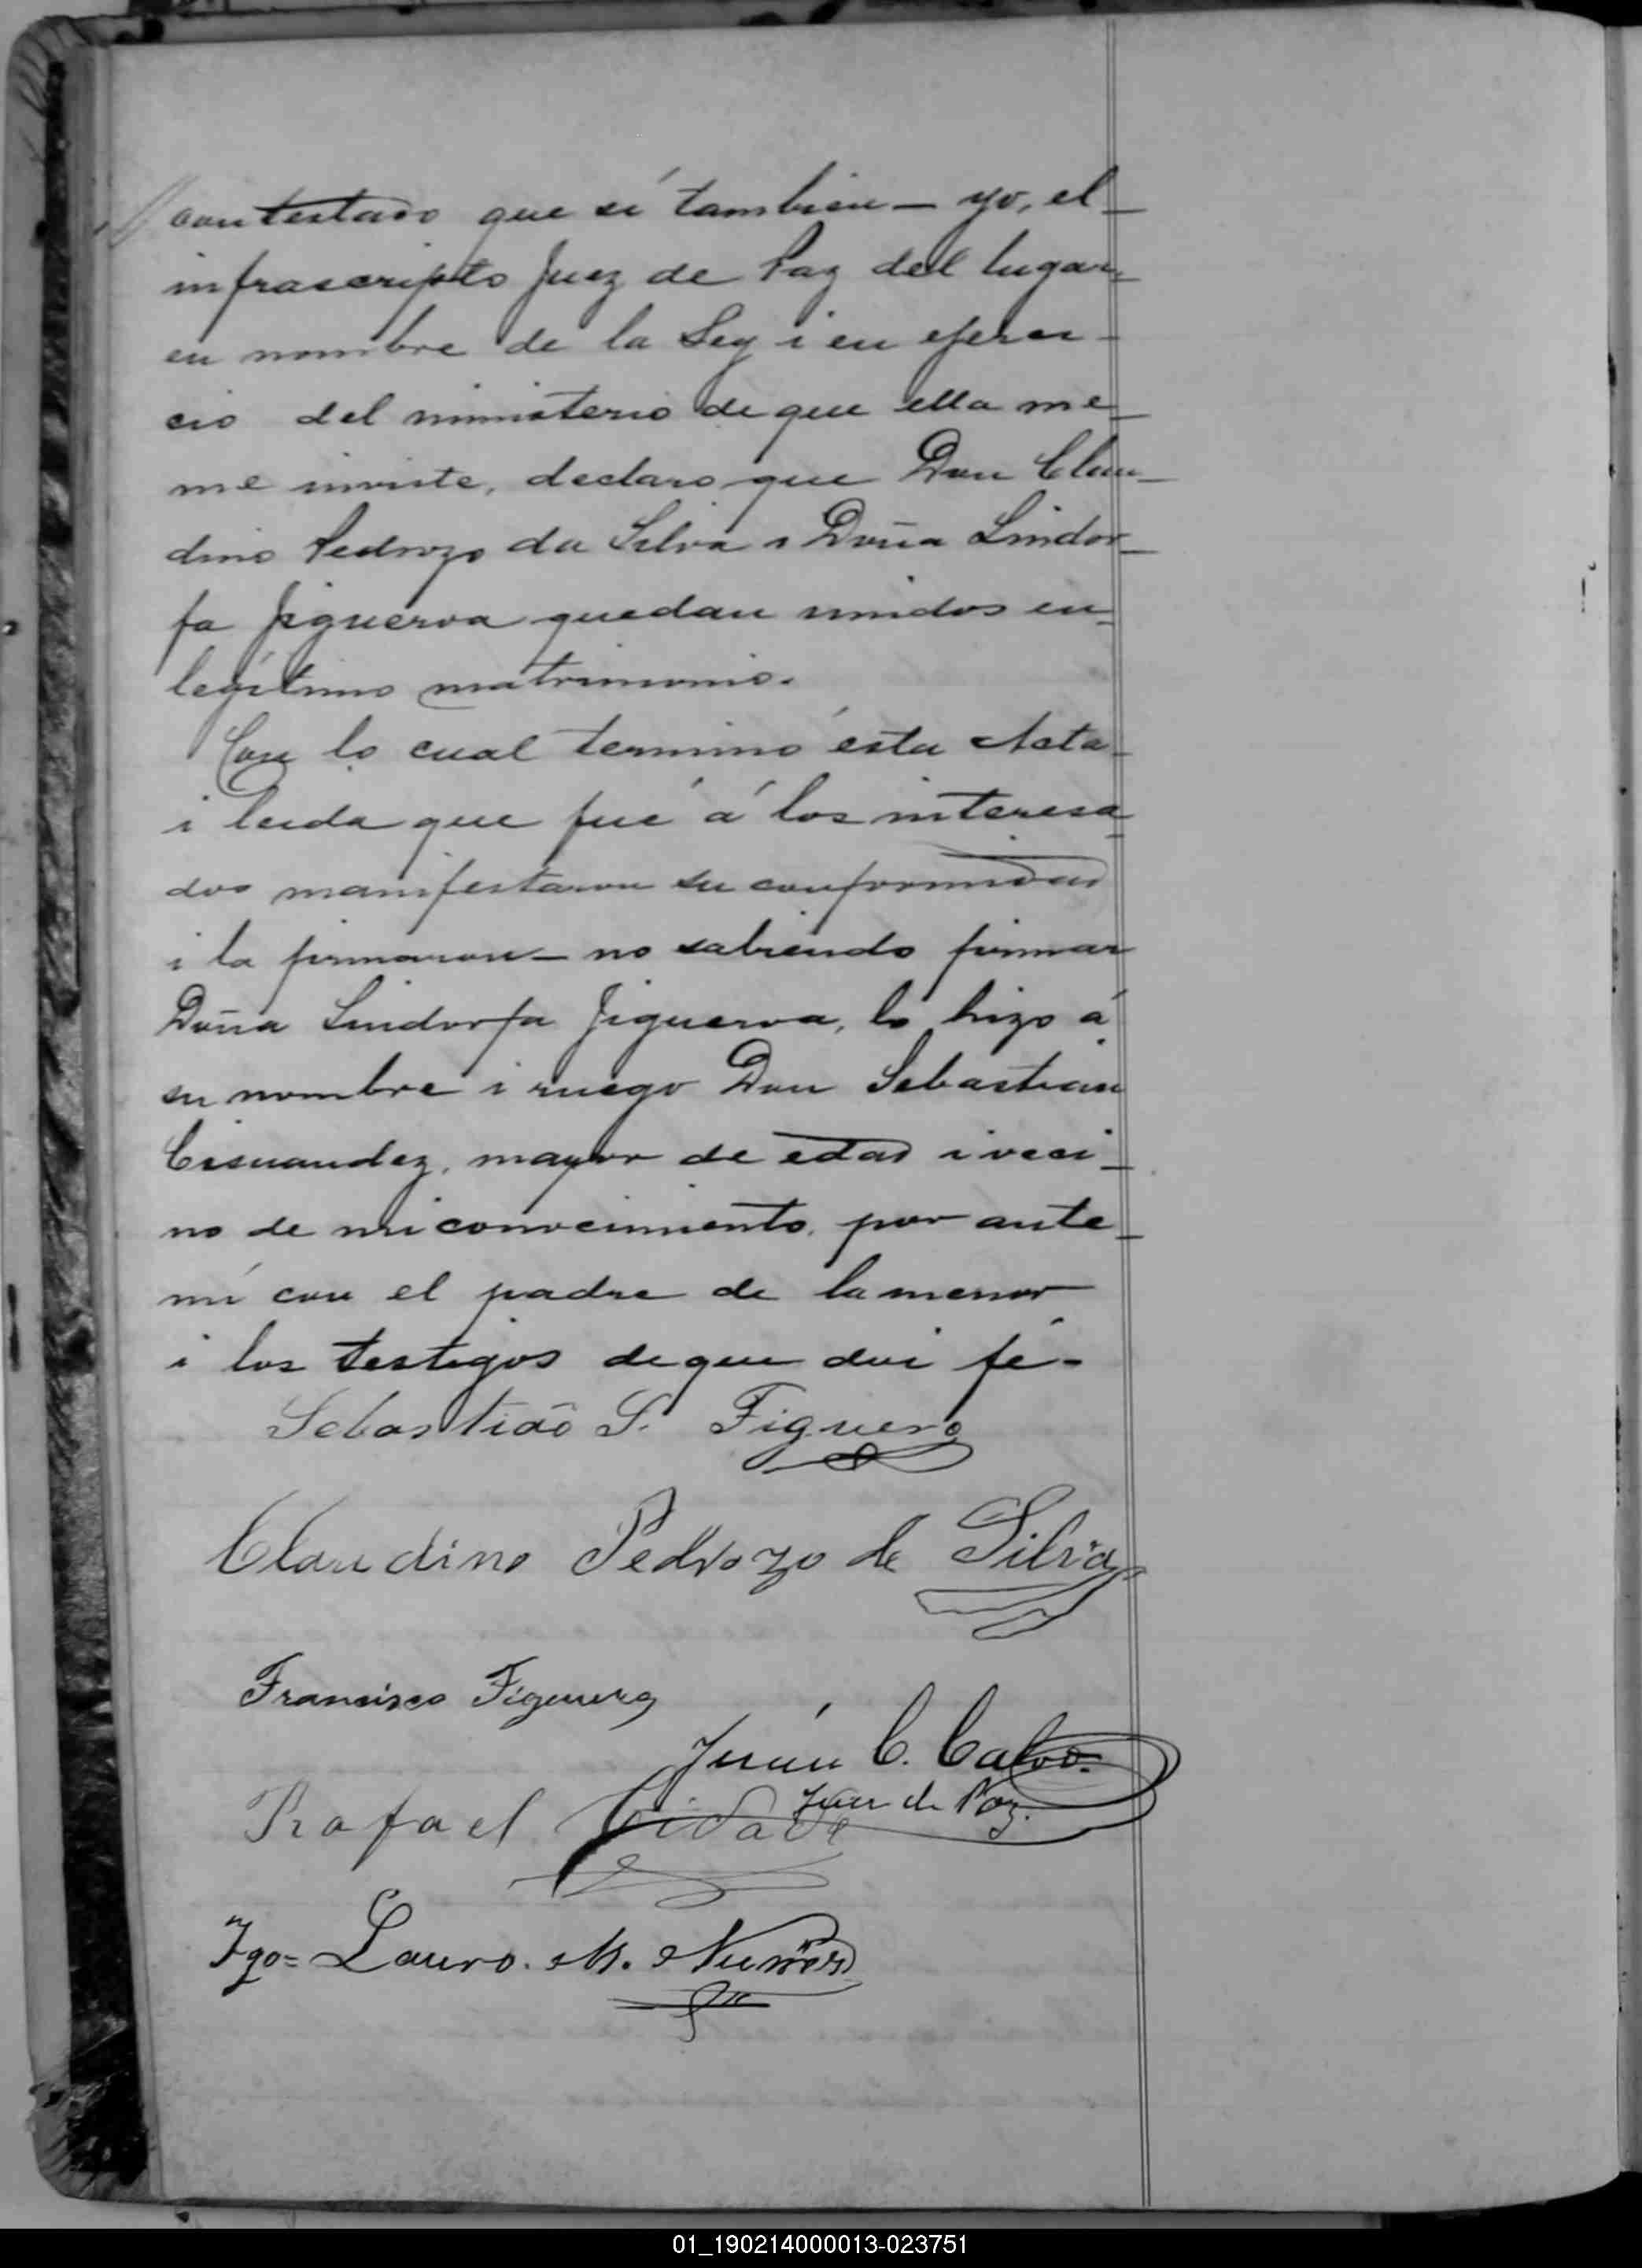 contestado que sí tambien — yo, el
infrascripto Juez de Paz del lugar
en nombre de la Ley i en ejerci-
cio del ministerio de que ella me
me inviste, declaro que Don Clau-
dino Pedrozo da Silva i Doña Lindor-
fa Figueroa quedan unidos en
legítimo matrimonio.
Con lo cual terminó ésta Acta
i leida que fué á los interesa
dos manifestaron su conformidad
i la firmaron — no sabiendo firmar
Doña Lindorfa Figueroa, lo hizo á
su nombre i ruego Don Sebastian
mayor de edad i veci-
no de mi conocimiento, por ante
mí con el padre de la menor
i los testigos de que doi fé -
Sebastião S. Figuero
Claudino Pedrozo de Silva
Francisco Figuero
Juan C. Calvo.
Juez de Paz.
Rafael Cidade
Tgo= Lauro. M. Nuñez
01_190214000013-023751